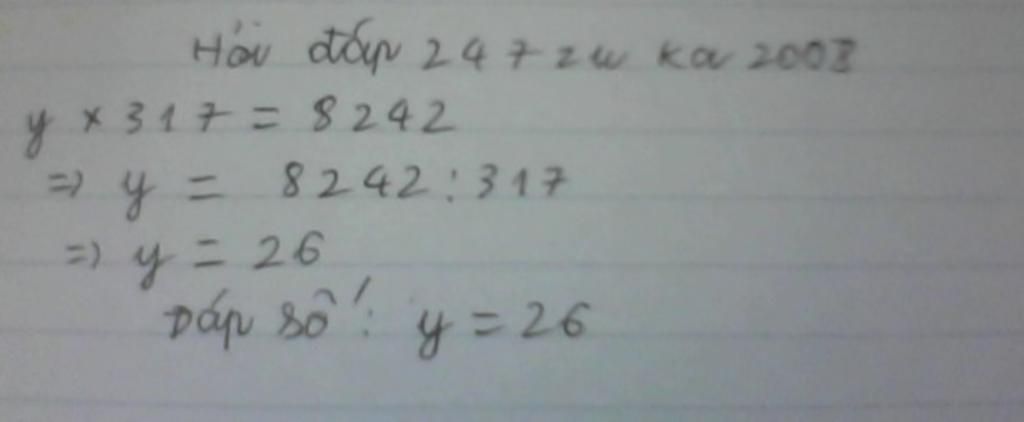 Hỏi đáp 247 zu ka 2003
y × 317 = 8242
=> y = 8242 : 317
=> y = 26
Đáp số : y = 26